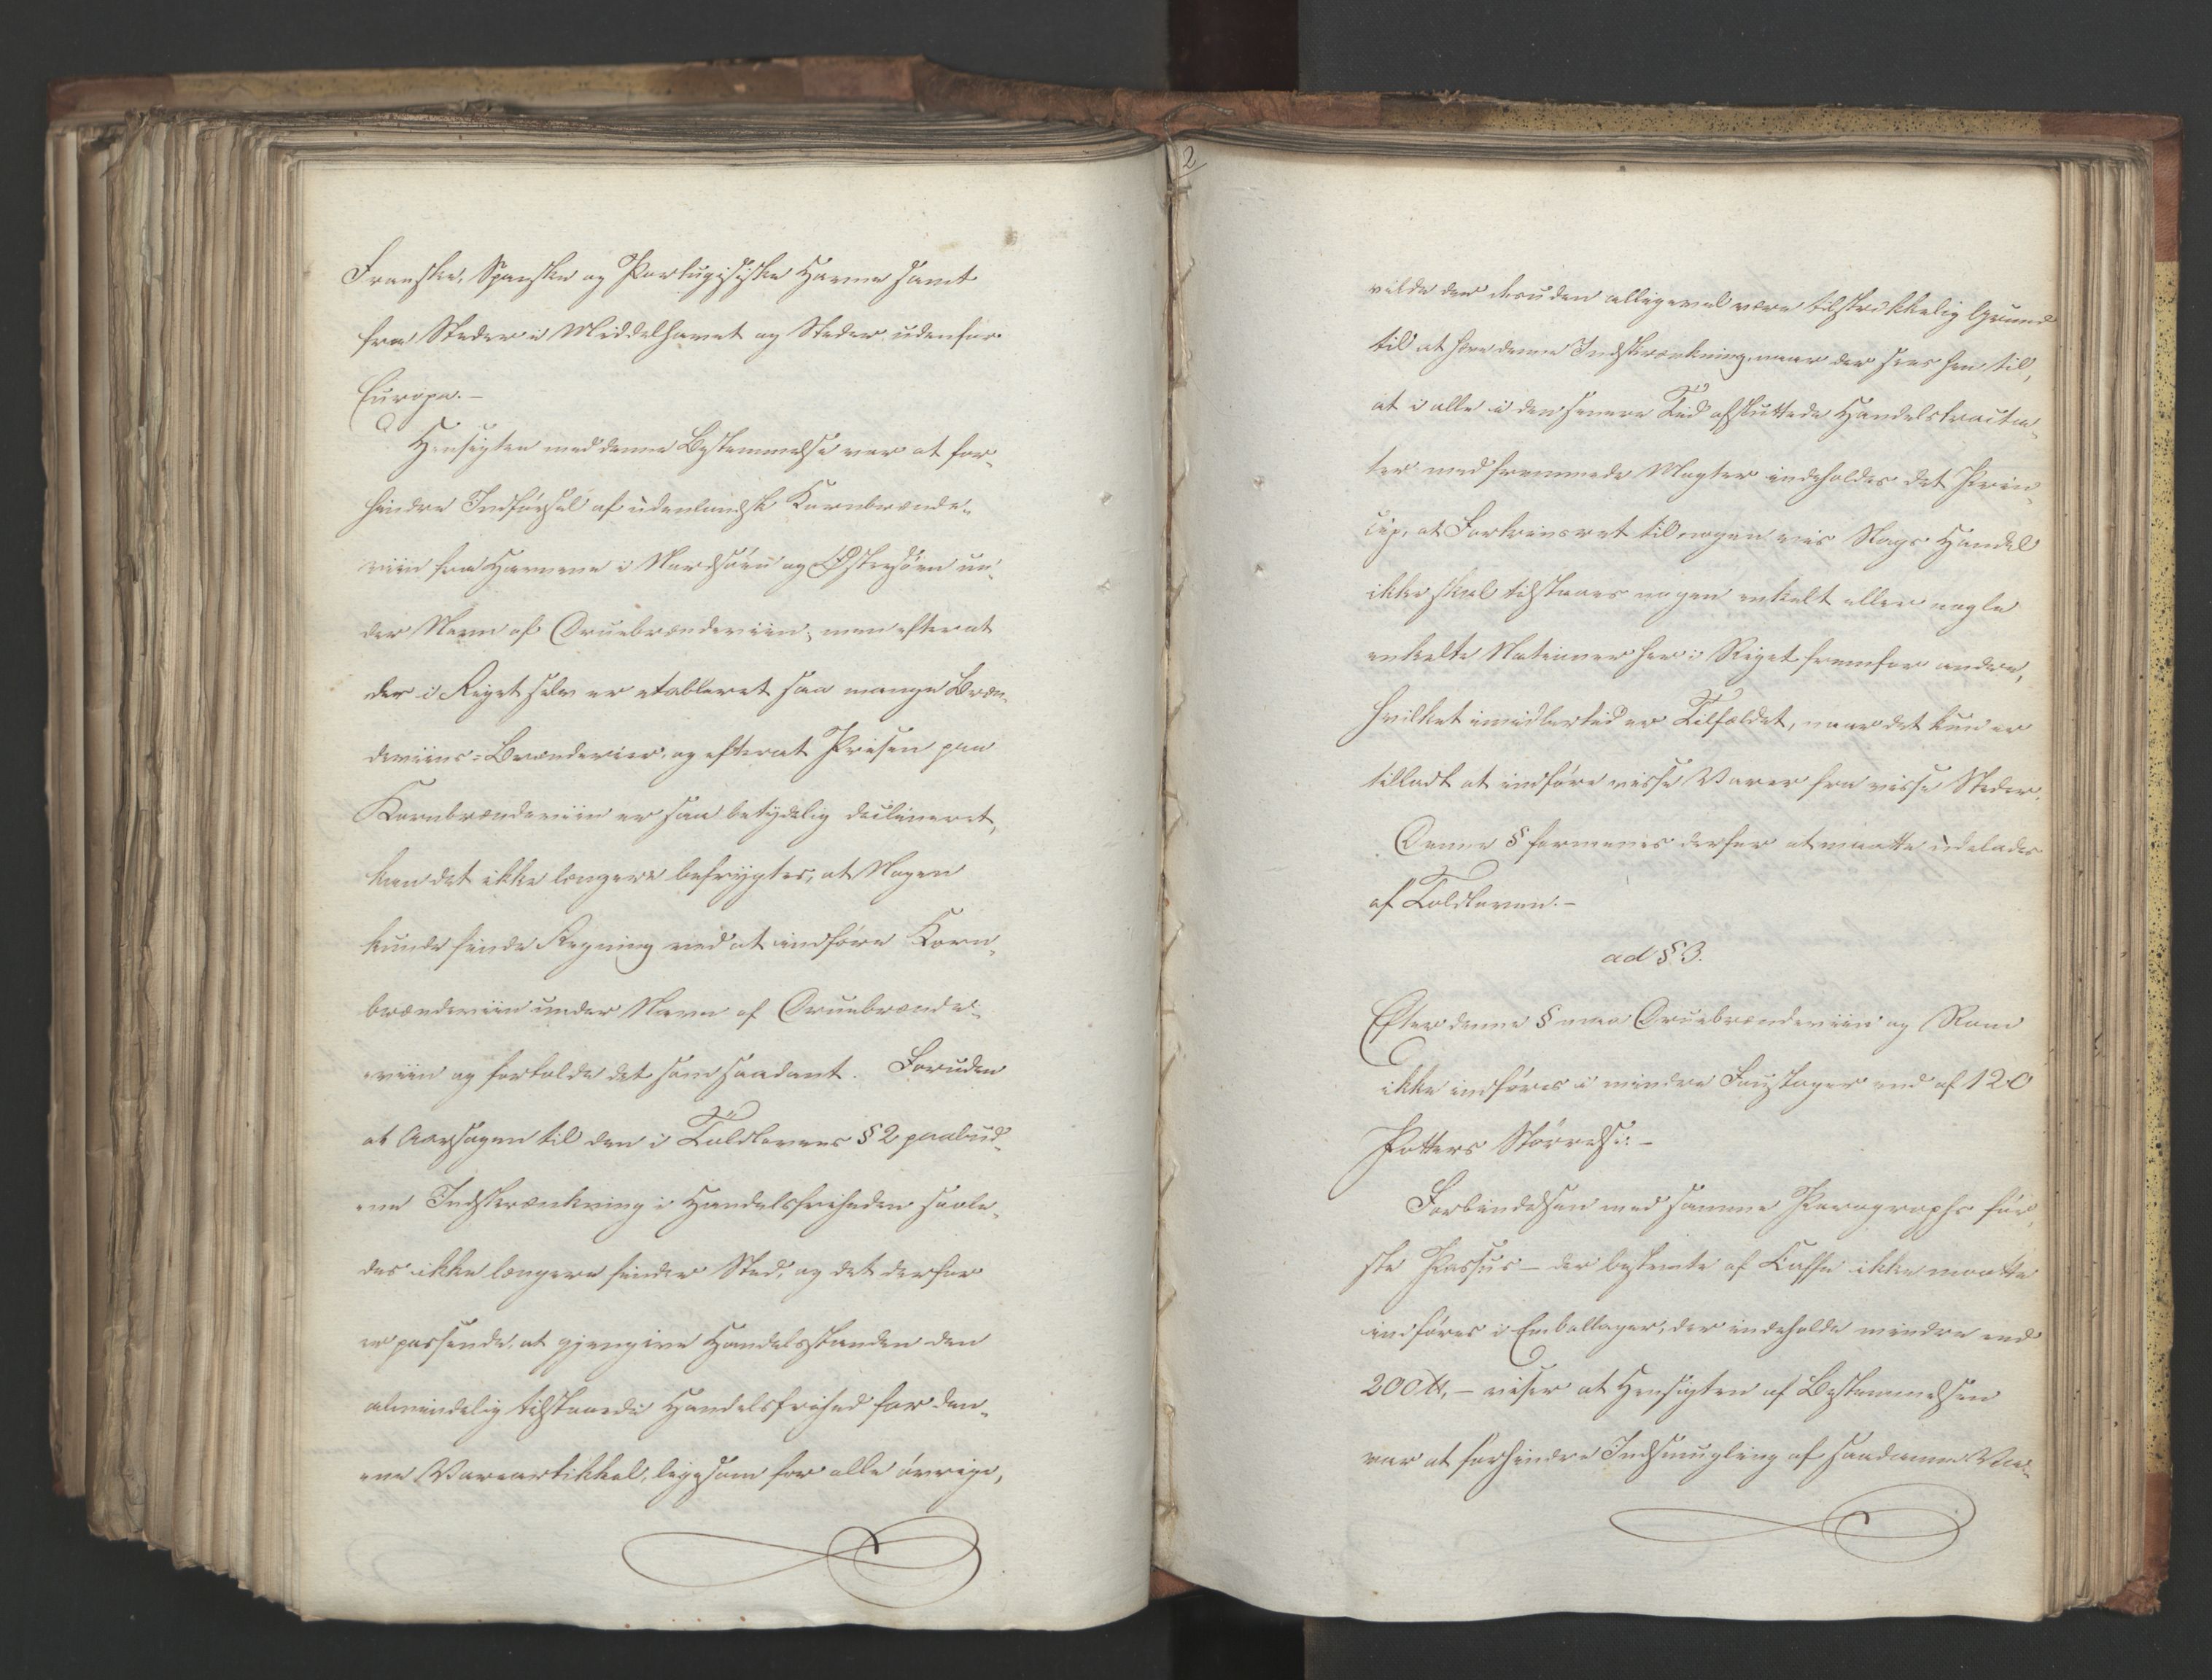 Franske, Spanske og Portugisiske Havne samt
fra Steder i Middelhavet og Steder udenfor
Europa.–
Hensigten med denne Bestemmelse var at for-
hindre Indførsel af udenlandsk Kornbrænde-
viin fra Havnene i Nordsøen og Østersøen un-
der Navn af Druebrændeviin; men efterat
der i Riget selv er etableret saa mange Bræn-
deviins-Brænderier, og efterat Prisen paa
Kornbrændeviin er saa betydelig declineret,
kan det ikke længere befrygtes, at Nogen
kunde finde Regning ved at indføre Korn-
brændeviin under Navn af Druebrænde-
viin og fortolde det som saadant. Foruden
at Aarsagen til den i Toldlovens § 2 paabud-
ene Indskrænkning i Handelsfriheden saale-
des ikke længere finder Sted, og det derfor
er passende, at gjengive Handelsstanden den
almindelig tilstaaede Handelsfrihed for den-
ne Vareartikkel, ligesom for alle øvrige,
2
vilde der desuden alligevel være tilstrækkelig Grund
til at hæve denne Indskrænkning, naar der sees hen til,
at i alle i den senere Tid afsluttede Handelstracta-
ter med fremmede Magter indeholdes det Prin-
cip, at Fortrinsret til nogen vis Slags Handel
ikke skal tilstaaes nogen enkelt eller nogle
enkelte Nationer her i Riget fremfor andre,
hvilket imidlertid er Tilfældet, naar det kun er
tilladt at indføre visse Varer fra visse Steder.
Denne § formenes derfor at maatte udelades
af Toldloven.–
ad § 3.
Efter denne § maa Druebrændeviin og Rom
ikke indføres i mindre Fustager end af 120
Potters Størrelse.–
Forbindelsen med samme Paragraphs før-
ste Passus – der bestemte at Caffe ikke maatte
indføres i Emballager, der indeholde mindre end
200 ℔, – viser at Hensigten af Bestemmelsen
var at forhindre Indsmugling af saadanne Va-